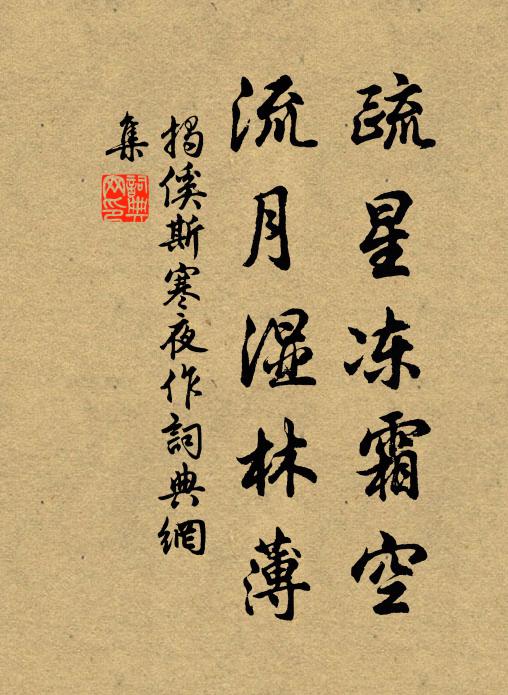 疏星冻霜空
流月湿林薄
揭傒斯寒夜作詞典網
集
詞典网印